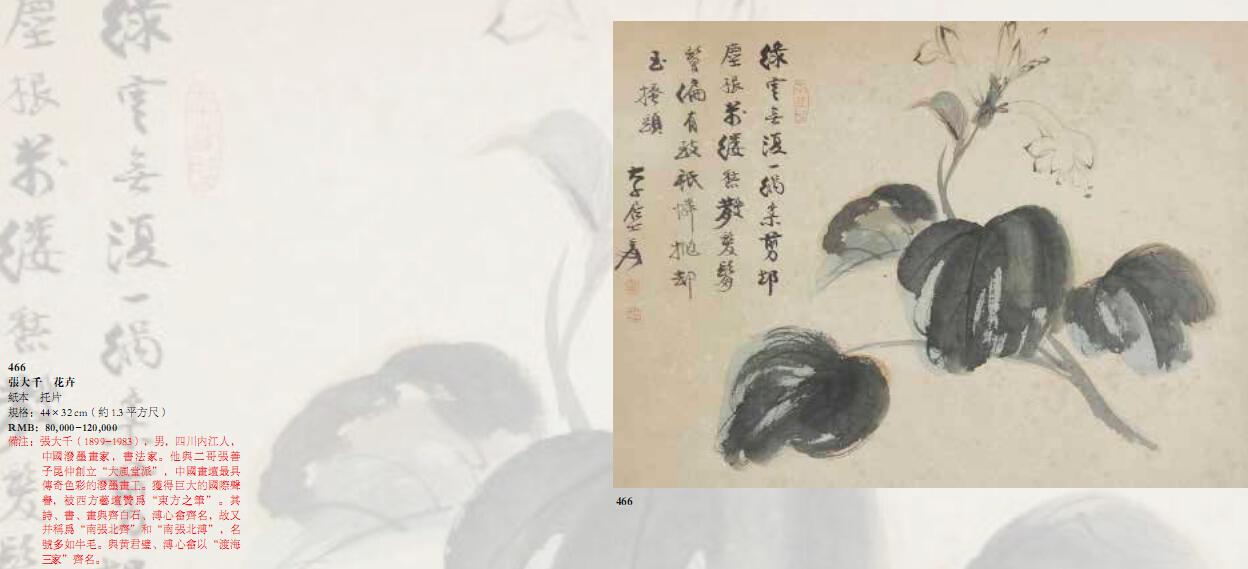 466
張大千　花卉
紙本　托片
規格：44×32 cm（約 1.3 平方尺）
RMB：80,000–120,000
備注：張大千（1899–1983），男，四川内江人，
中國潑墨畫家，書法家。他與二哥張善
子昆仲創立“大風堂派”，中國畫壇最具
傳奇色彩的潑墨畫工。獲得巨大的國際聲
譽，被西方藝壇贊爲“東方之筆”。其
詩、書、畫與齊白石、溥心畬齊名，故又
并稱爲“南張北齊”和“南張北溥”，名
號多如牛毛。與黃君璧、溥心畬以“渡海
三家”齊名。
綠雲無復一絲剪却
塵張萬縷愁散髮鬅
鬢偏有致祇憐抛却
玉搔頭
大千居士爰
466